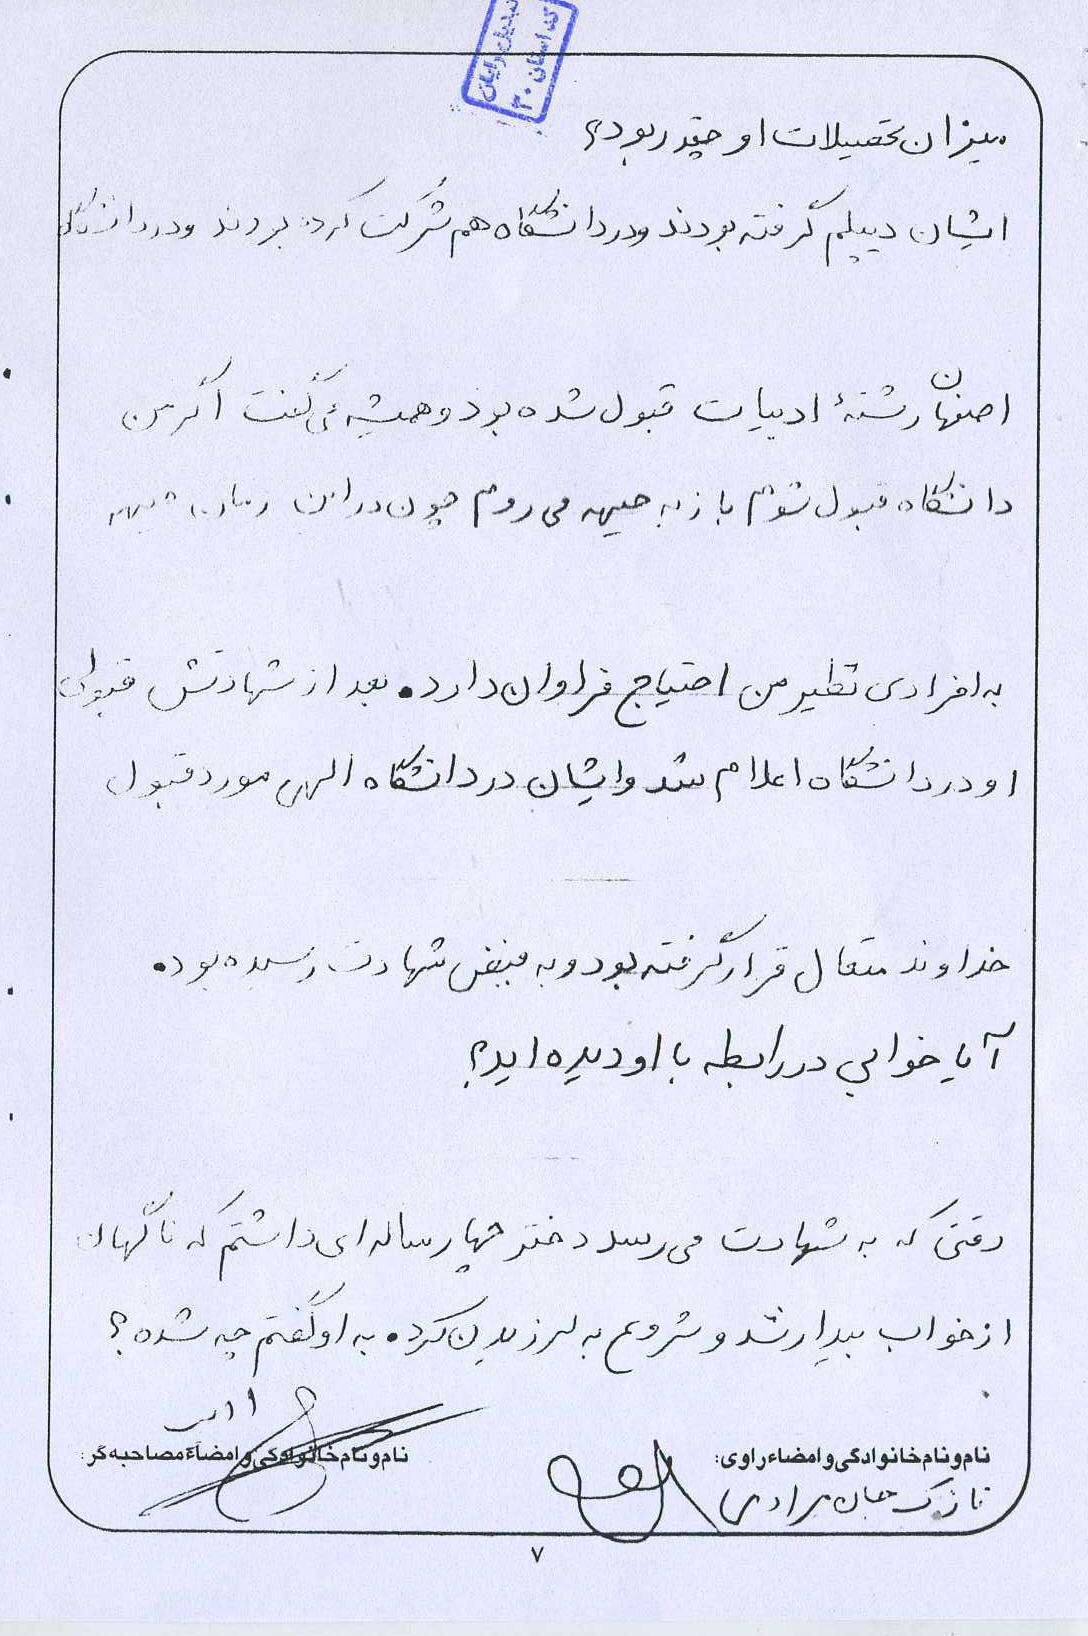 تبدیل رایان
کد استان ۳۰
میزان تحصیلات او چقدر بود؟
ایشان دیپلم گرفته بودند و در دانشگاه هم شرکت کرده بودند و در دانشگاه
اصفهان رشتهٔ ادبیات قبول شده بود و همیشه می گفت اگر من
دانشگاه قبول شوم باز به جبهه می روم چون در این زمان جبهه
به افرادی نظیر من احتیاج فراوان دارد. بعد از شهادتش قبولی
او در دانشگاه اعلام شد و ایشان در دانشگاه الهی مورد قبول
خداوند متعال قرار گرفته بود و به فیض شهادت رسیده بود.
آیا خوابی در رابطه با او دیده اید؟
وقتی که به شهادت می رسد دختر چهار ساله ای داشتم که ناگهان
از خواب بیدار شد و شروع به لرزیدن کرد. به او گفتم چه شده؟
نام و نام خانوادگی و امضاء راوی:
نازک جان مرادی
نام و نام خانوادگی و امضاء مصاحبه گر:
۷